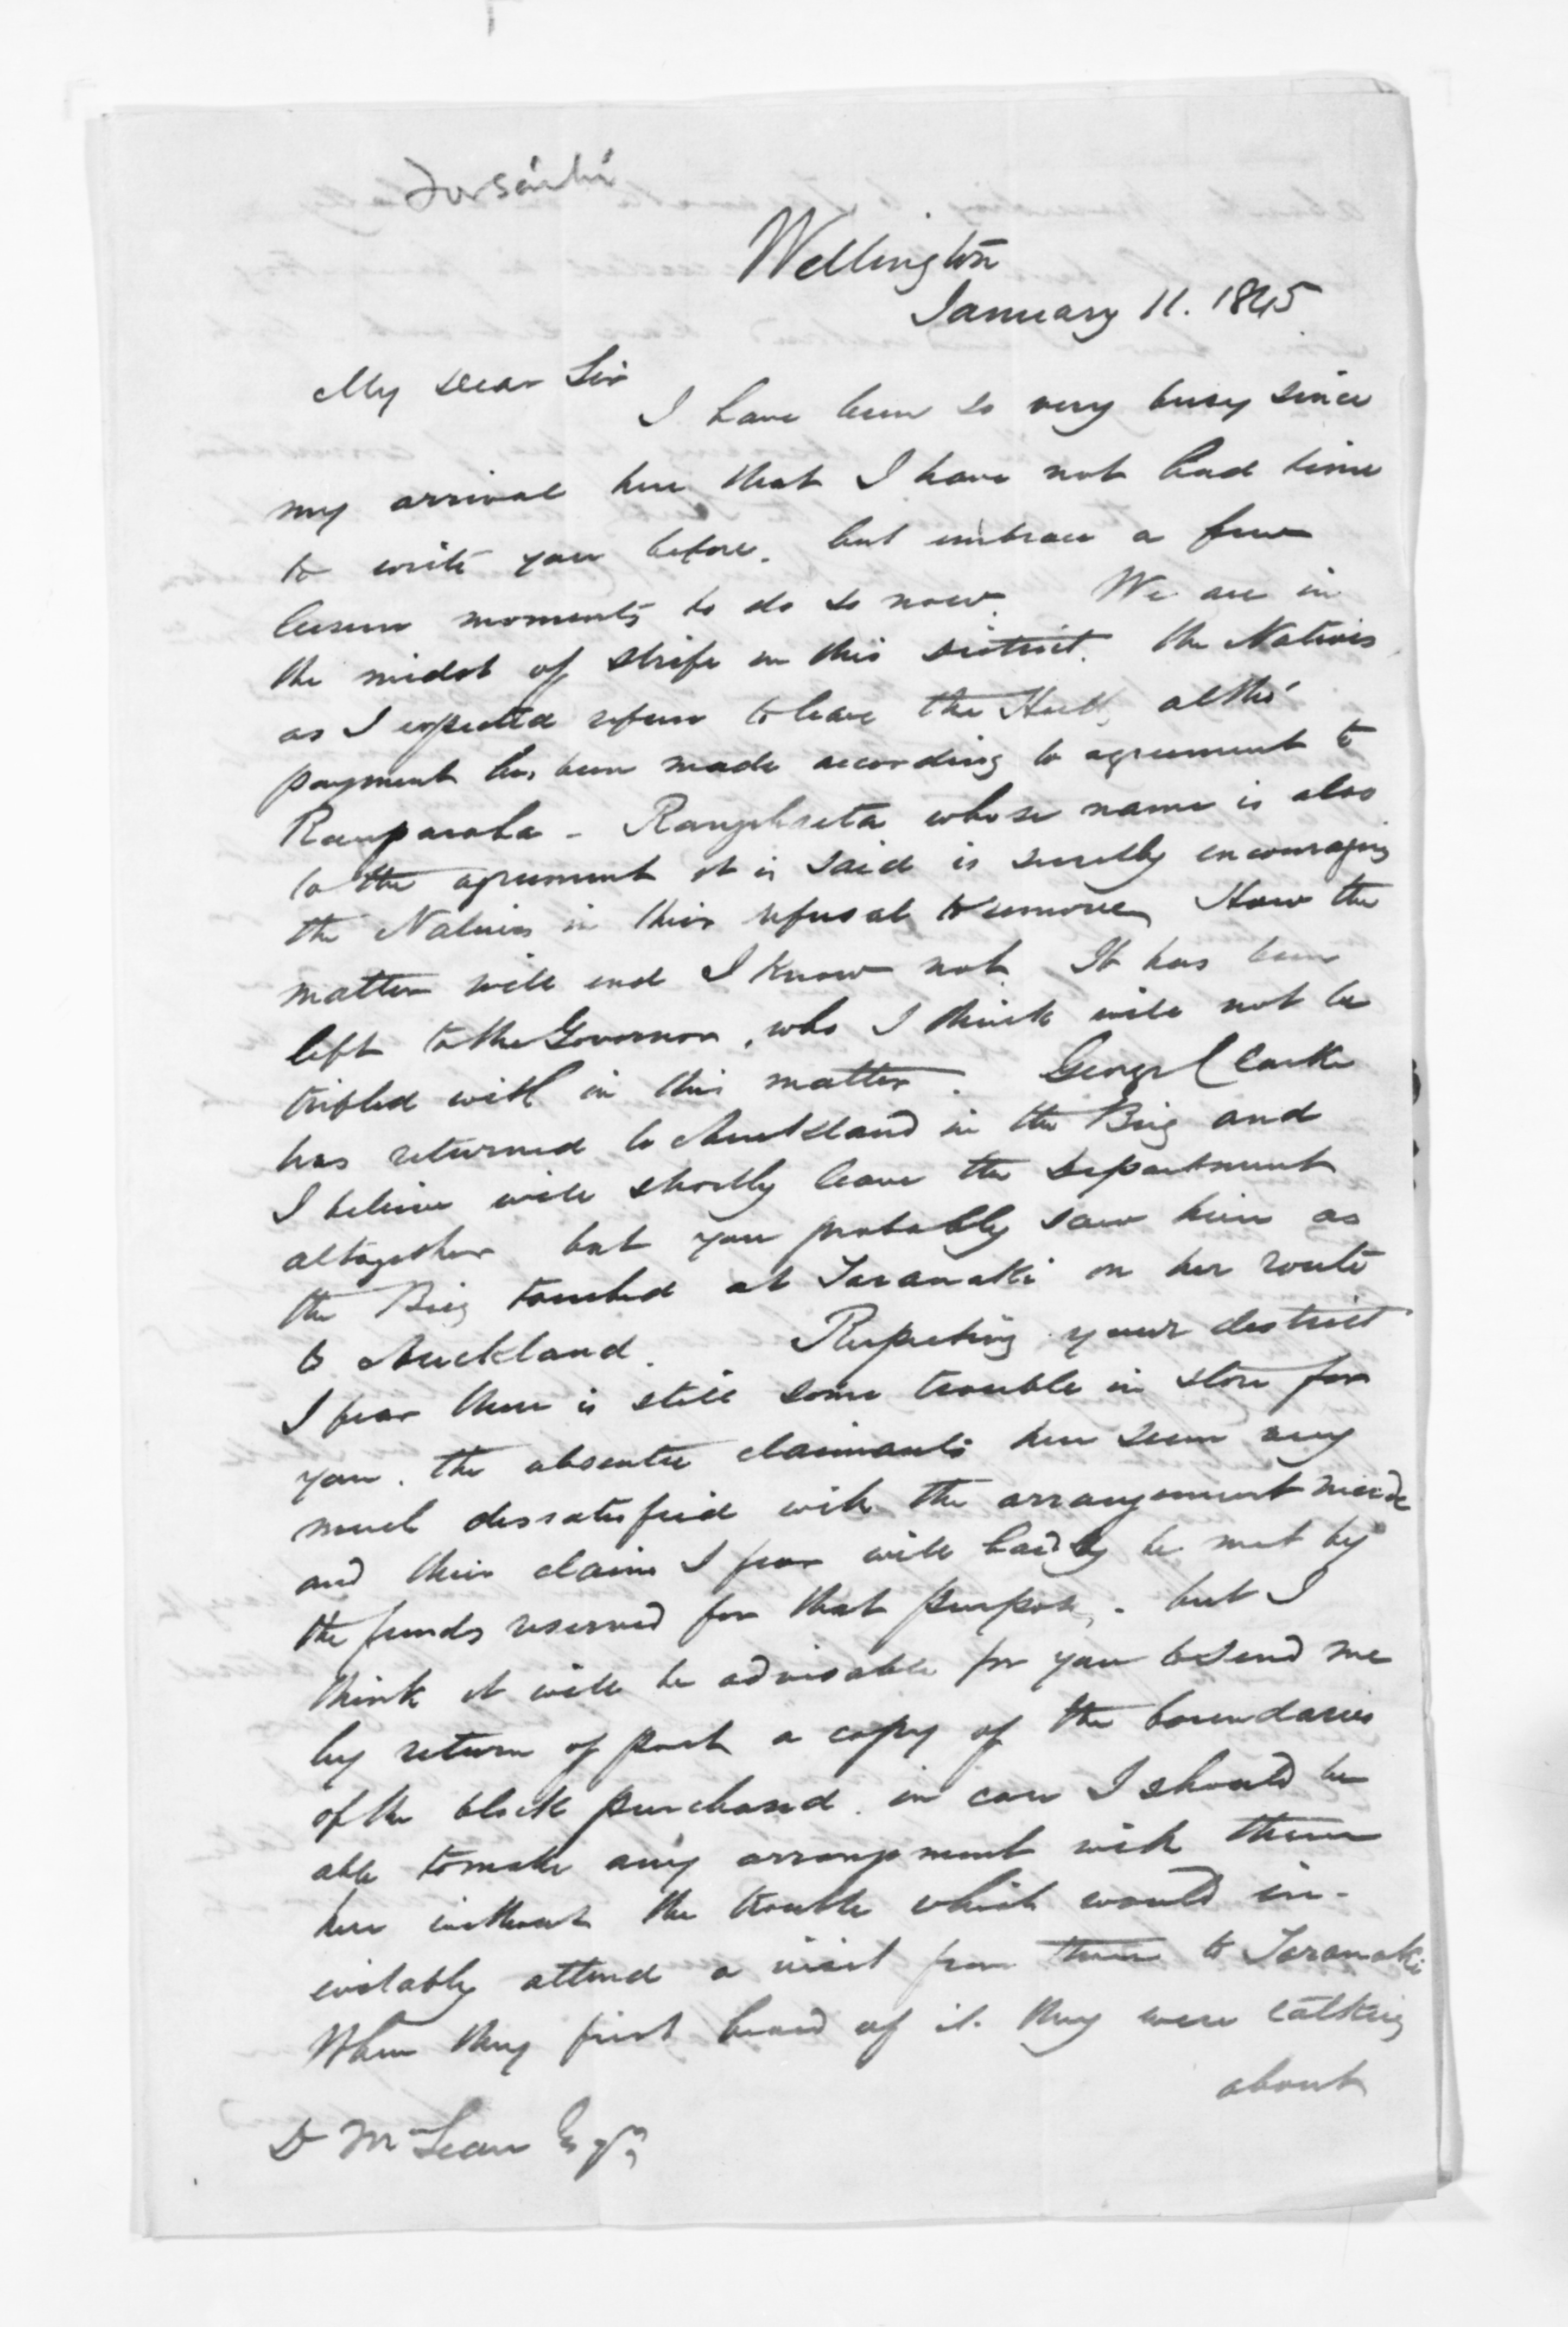 Forsaith
Wellington
January 11. 1845
My Dear Sir
I have been so very busy since
my arrival here that I have not had time
to write you before. but embrace a few
leisure moments to do so now. We are in
the midst of strife in this district. the Natives
as I expected refuse to leave the Hutt, altho'
payment has been made according to agreement to
Rauparaha - Rangihaeta whose name is also
to the agreement it is said is secretly encouraging
the Natives in their refusal to remove How the
matter will end I know not. It has been
left to the Governor, who I think will not be
trifled with in this matter. George Clarke
has returned to Auckland in the Brig and
I believe will shortly leave the Department
altogether but you probably saw him as
the Brig touched at Taranaki on her route
to Auckland. Respecting your district
I fear there is still some trouble in store for
you. the absentee claimants here seem very
much dissatisfied with the arrangement made
and their claims I fear will hardly be met by
the funds reserved for that purpose. - but I
think it will be advisable for you to send me
by return of post a copy of the boundaries
of the block purchased in case I should be
able to make any arrangement with them
here without the trouble which would in-
evitably attend a visit from them to Taranaki
When they first heard of it. they were talking
about
D McLean Esqr,